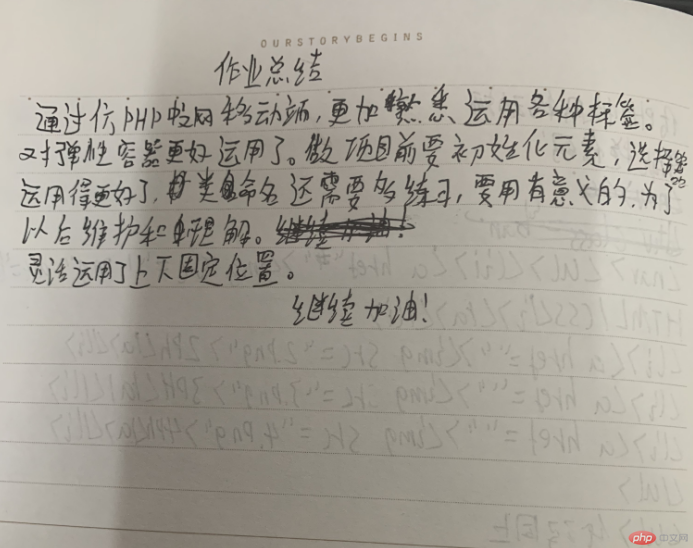 OURSTORYBEGINS
作业总结
通过仿PHP中文网移动端,更加熟悉运用各种标签。
对弹性容器更好运用了。做项目前要初始化元素,选择器的
运用得更好了,类命名还需要多练习,要用有意义的,为了
以后维护和理解。
灵活运用了上下固定位置。
继续加油!
php 中文网